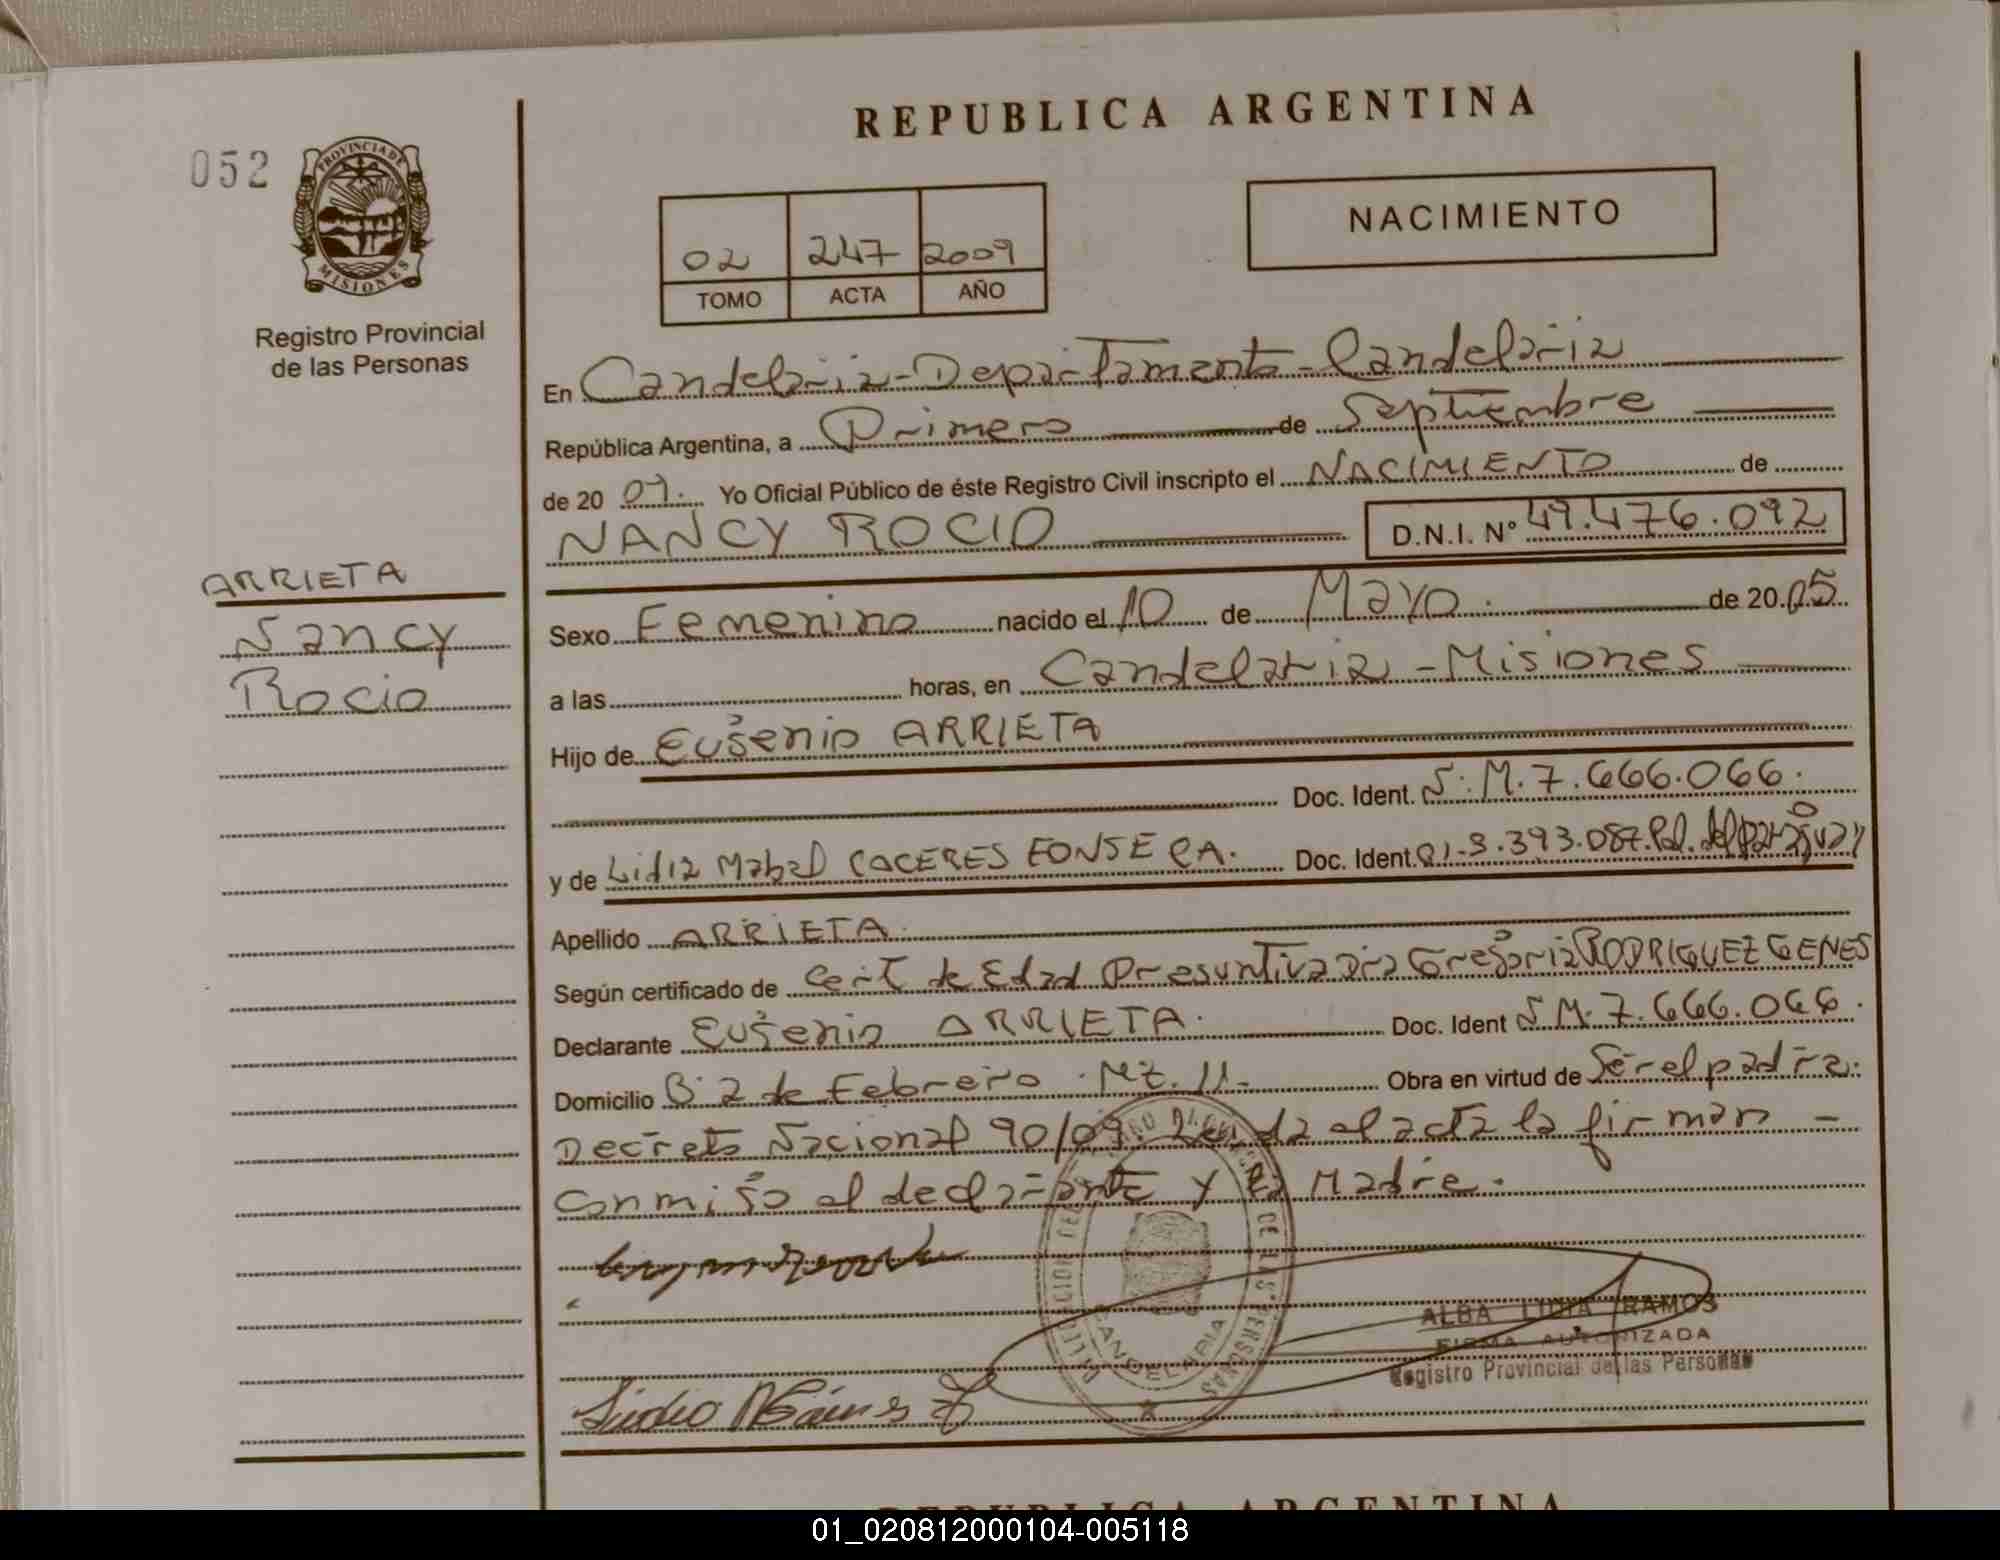 REPUBLICA ARGENTINA
052
PROVINCIA DE
MISIONES
Registro Provincial
de las Personas
NACIMIENTO
02 247 2009
TOMO ACTA AÑO
En Candelaria - Departamento - Candelaria
República Argentina, a Primero de Septiembre
de 20 09. Yo Oficial Público de éste Registro Civil inscripto el NACIMIENTO de
NANCY ROCIO D.N.I. Nº 49.476.092
ARRIETA
Nancy
Rocio
Sexo Femenino nacido el 10 de Mayo. de 20.05
a las horas, en Candelaria - Misiones
Hijo de Eugenio ARRIETA
Doc. Ident. S: M. 7.666.066.
y de Lidia Mabel CACERES FONSECA. Doc. Ident. 3.393.087. Pol. del Paraguay
Apellido ARRIETA.
Según certificado de Cert de Edad Presuntiva Dra Gregoria RODRIGUEZ GENES
Declarante Eugenio ARRIETA. Doc. Ident S M. 7.666.066.
Domicilio B: 2 de Febrero. Mz. 11- Obra en virtud de Ser el padre.
Decreto Nacional 90/09. Leida el acta la firman -
conmigo el declarante y la Madre.
ALBA LIDIA RAMOS
FIRMA AUTORIZADA
Registro Provincial de las Personas
CANDELARIA
REPUBLICA ARGENTINA
01_020812000104-005118